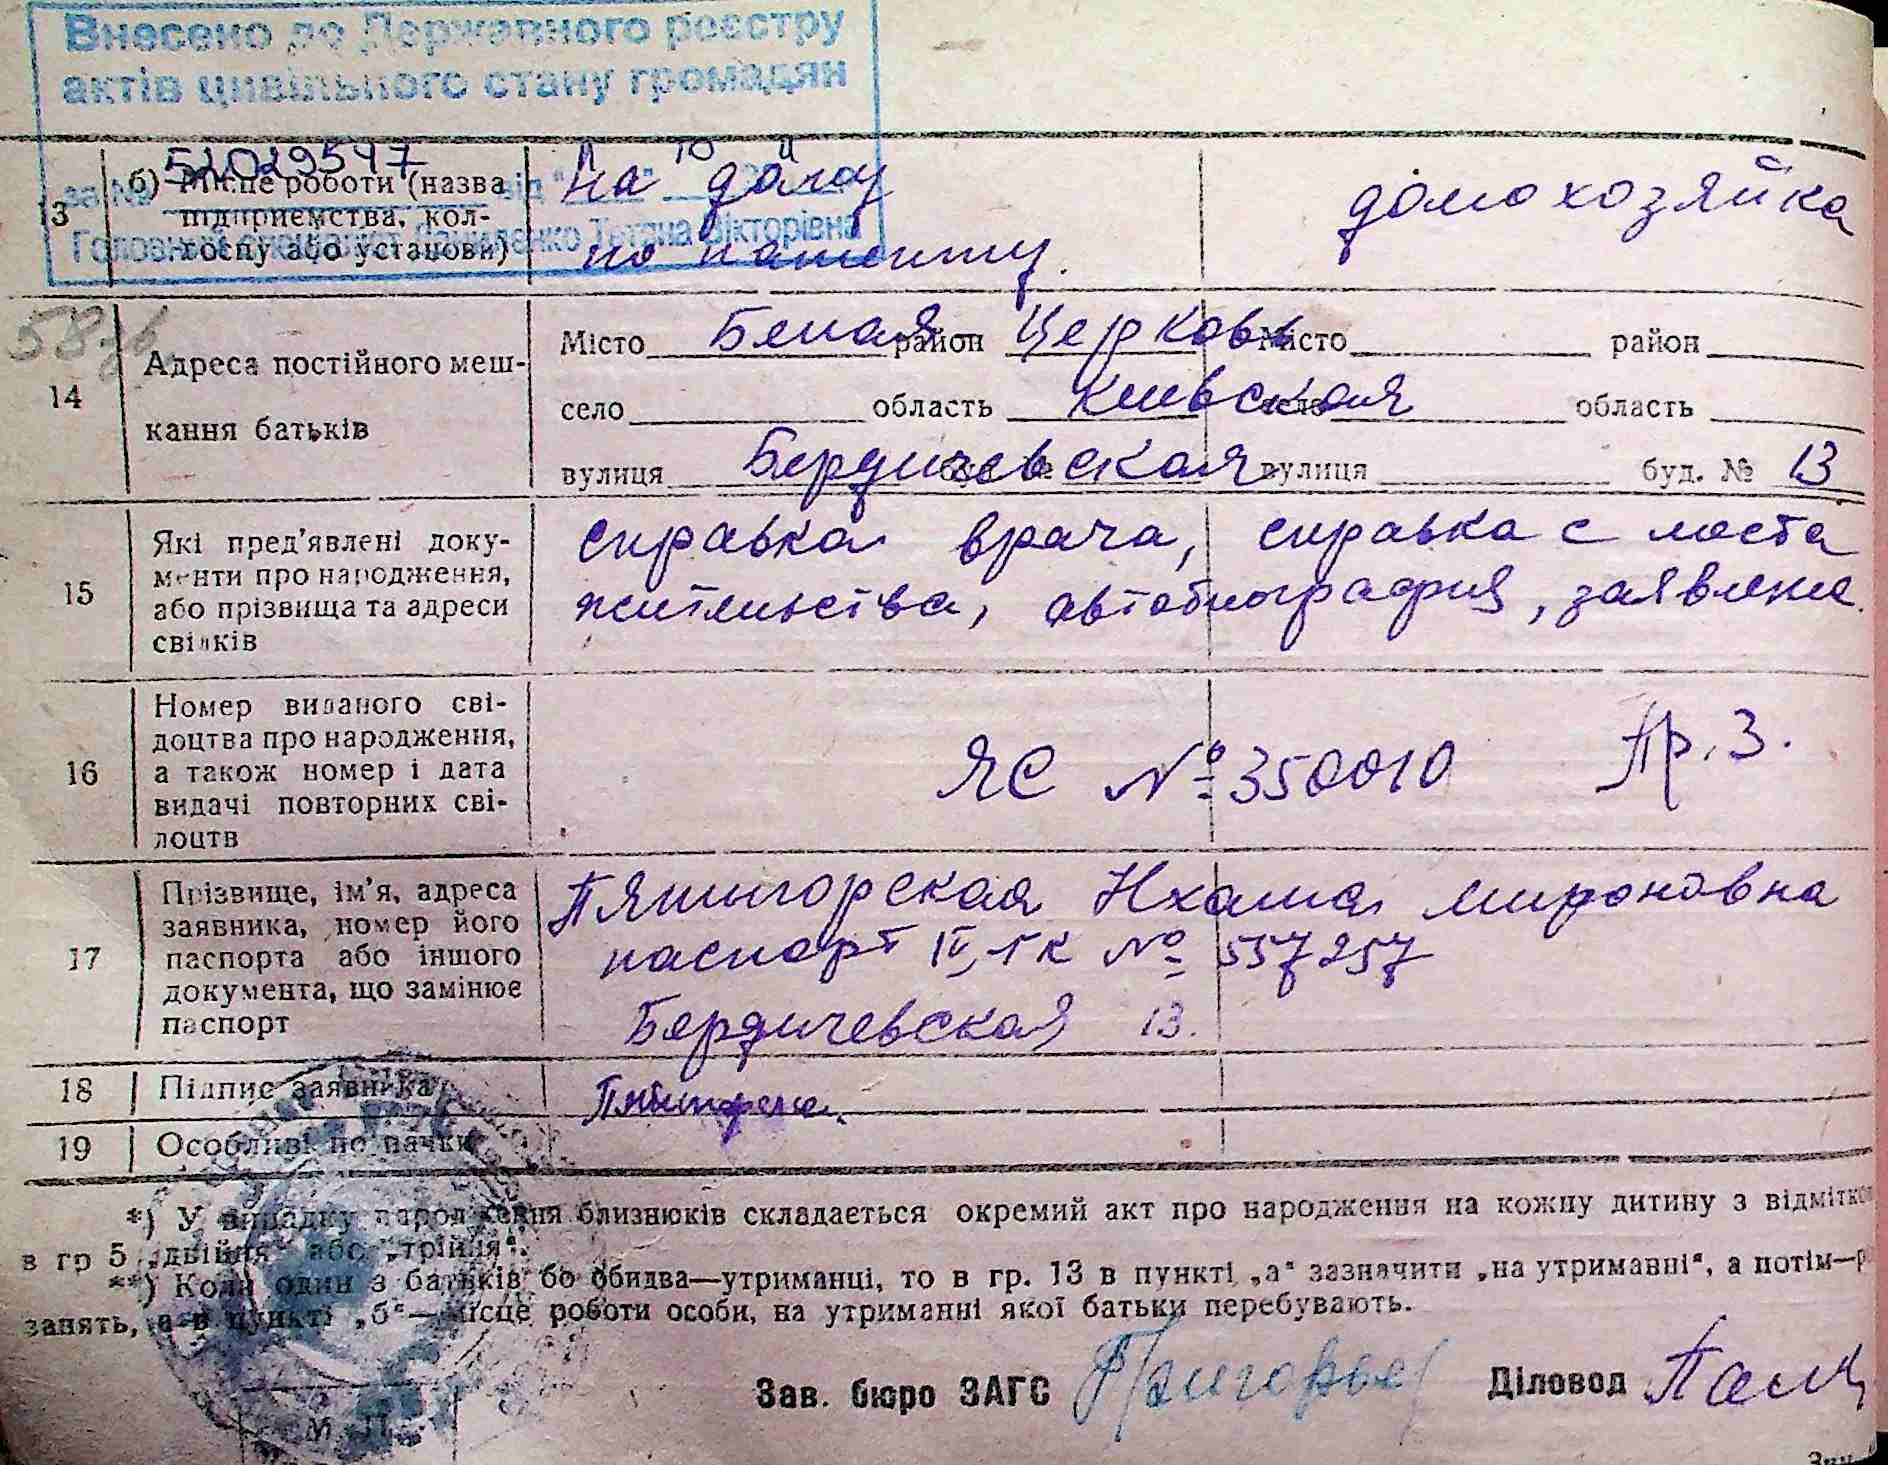 Внесено до Державного реєстру
актів цивільного стану громадян
за № 52029547 від
Тетяна Вікторівна
13 б) Місце роботи (назва підприємства, колгоспу або установи)
на дому
по патенту.
домохозяйка
14 Адреса постійного мешкання батьків
Місто Белая район Церковь Місто район
село область Киевская село область
вулиця Бердичевская вулиця буд. № 13
15 Які пред'явлені документи про народження, або прізвища та адреси свідків
справка врача, справка с места
жительства, автобиография, заявление.
16 Номер виданого свідоцтва про народження, а також номер і дата видачі повторних свідоцтв
ЯС № 350010 Пр. 3.
17 Прізвище, ім'я, адреса заявника, номер його паспорта або іншого документа, що замінює паспорт
Пятигорская Нхама Мироновна
паспорт № 557257
Бердичевская 13.
18 Підпис заявника
19 Особливі помачки
*) У випадку народження близнюків складається окремий акт про народження на кожну дитину з відміткою
в гр 5 „двійня“ або „трійня“.
**) Коли один з батьків бо обидва—утриманці, то в гр. 13 в пункті „а“ зазначити „на утриманні“, а потім—р
занять, а в пункті „б“—місце роботи особи, на утриманні якої батьки перебувають.
Зав. бюро ЗАГС Діловод
М. П.